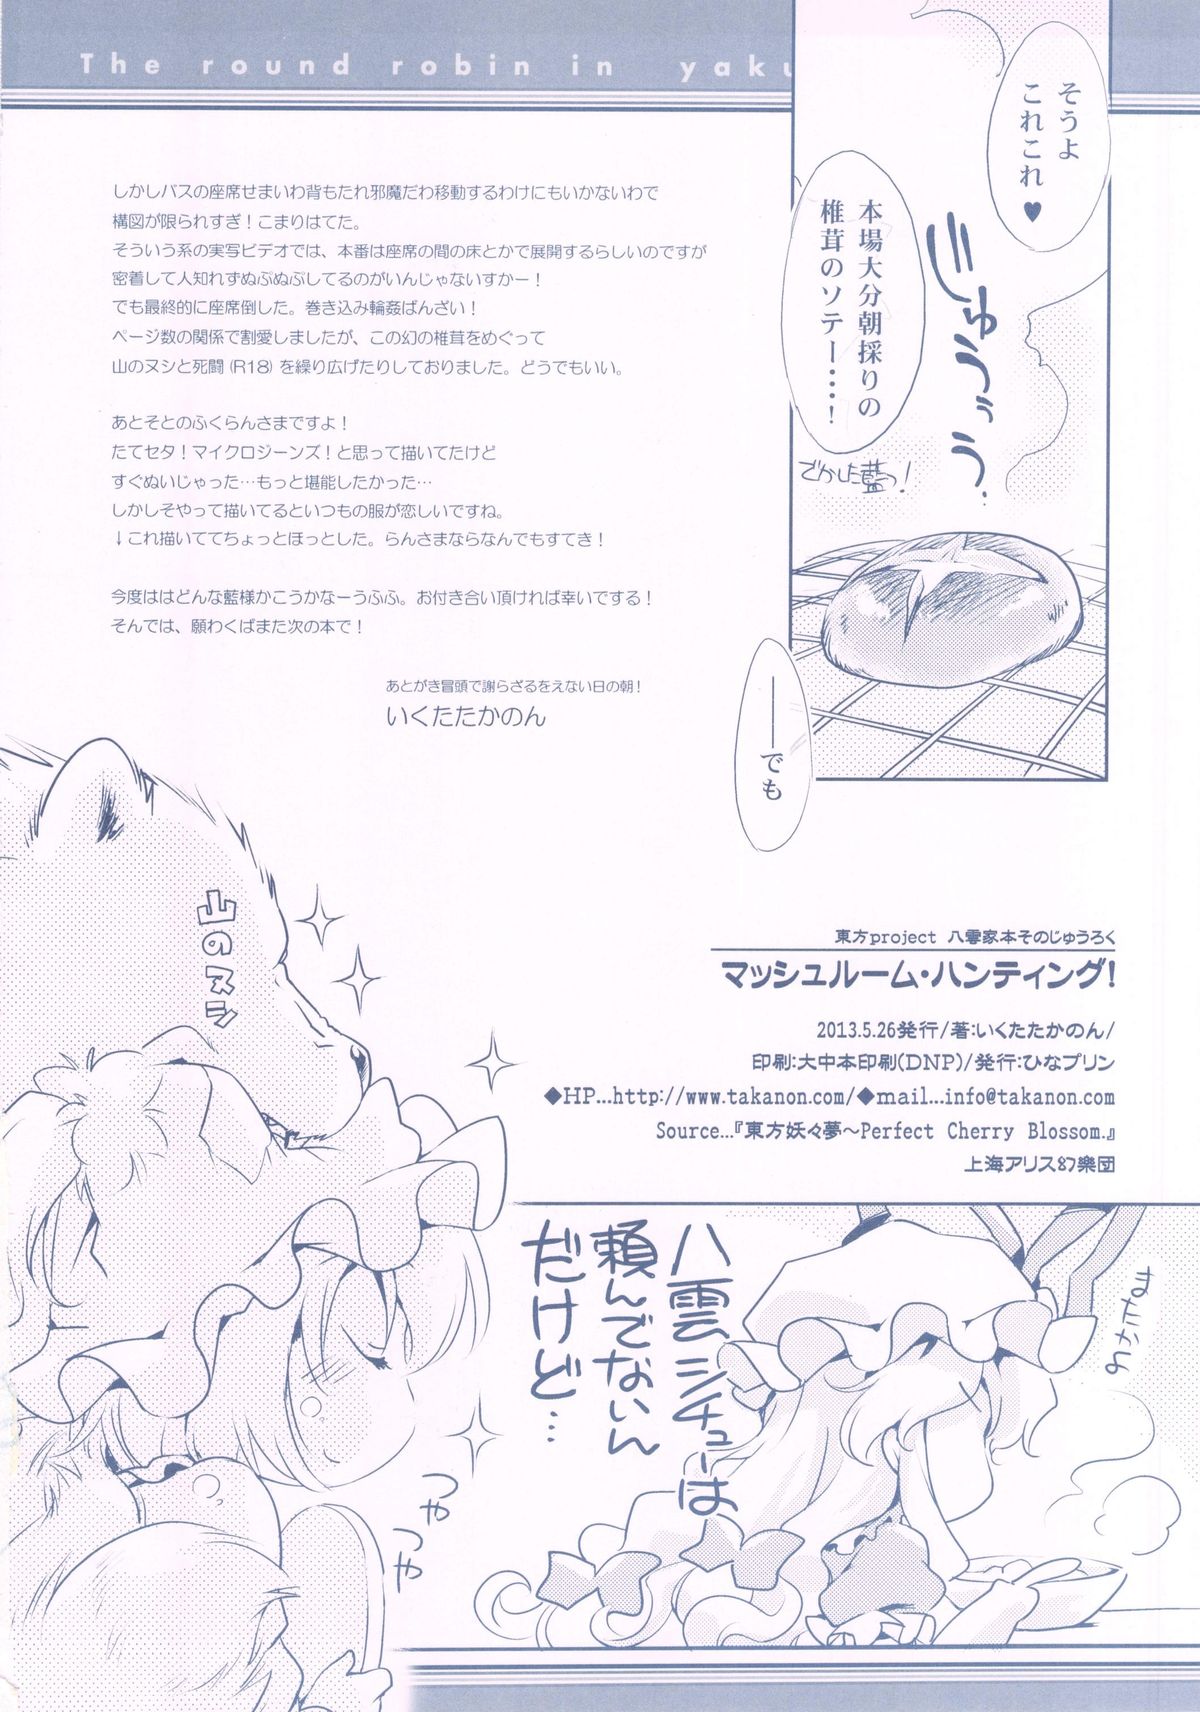 The round robin in yaku
そうよ
これこれ♥
本場大分朝採りの
椎茸のソテー‥‥!
じゅううぅぅ‥
でかした藍っ!
――でも
しかしバスの座席せまいわ背もたれ邪魔だわ移動するわけにもいかないわで
構図が限られすぎ!こまりはてた。
そういう系の実写ビデオでは、本番は座席の間の床とかで展開するらしいのですが
密着して人知れずぬぷぬぷしてるのがいんじゃないすかー!
でも最終的に座席倒した。巻き込み輪姦ばんざい!
ページ数の関係で割愛しましたが、この幻の椎茸をめぐって
山のヌシと死闘(R18)を繰り広げたりしておりました。どうでもいい。
あとそとのふくらんさまですよ!
たてセタ!マイクロジーンズ!と思って描いてたけど
すぐぬいじゃった…もっと堪能したかった…
しかしそやって描いてるといつもの服が恋しいですね。
↓これ描いててちょっとほっとした。らんさまならなんでもすてき!
今度ははどんな藍様かこうかなーうふふ。お付き合い頂ければ幸いでする!
そんでは、願わくばまた次の本で!
あとがき冒頭で謝らざるをえない日の朝!
いくたたかのん
山のヌシ
東方project 八雲家本そのじゅうろく
マッシュルーム・ハンティング!
2013.5.26発行/著:いくたたかのん/
印刷:大中本印刷(DNP)/発行:ひなプリン
◆HP...http://www.takanon.com/◆mail...info@takanon.com
Source...『東方妖々夢〜Perfect Cherry Blossom.』
上海アリス幻樂団
八雲シチューは
頼んでないん
だけど…
つや
つや